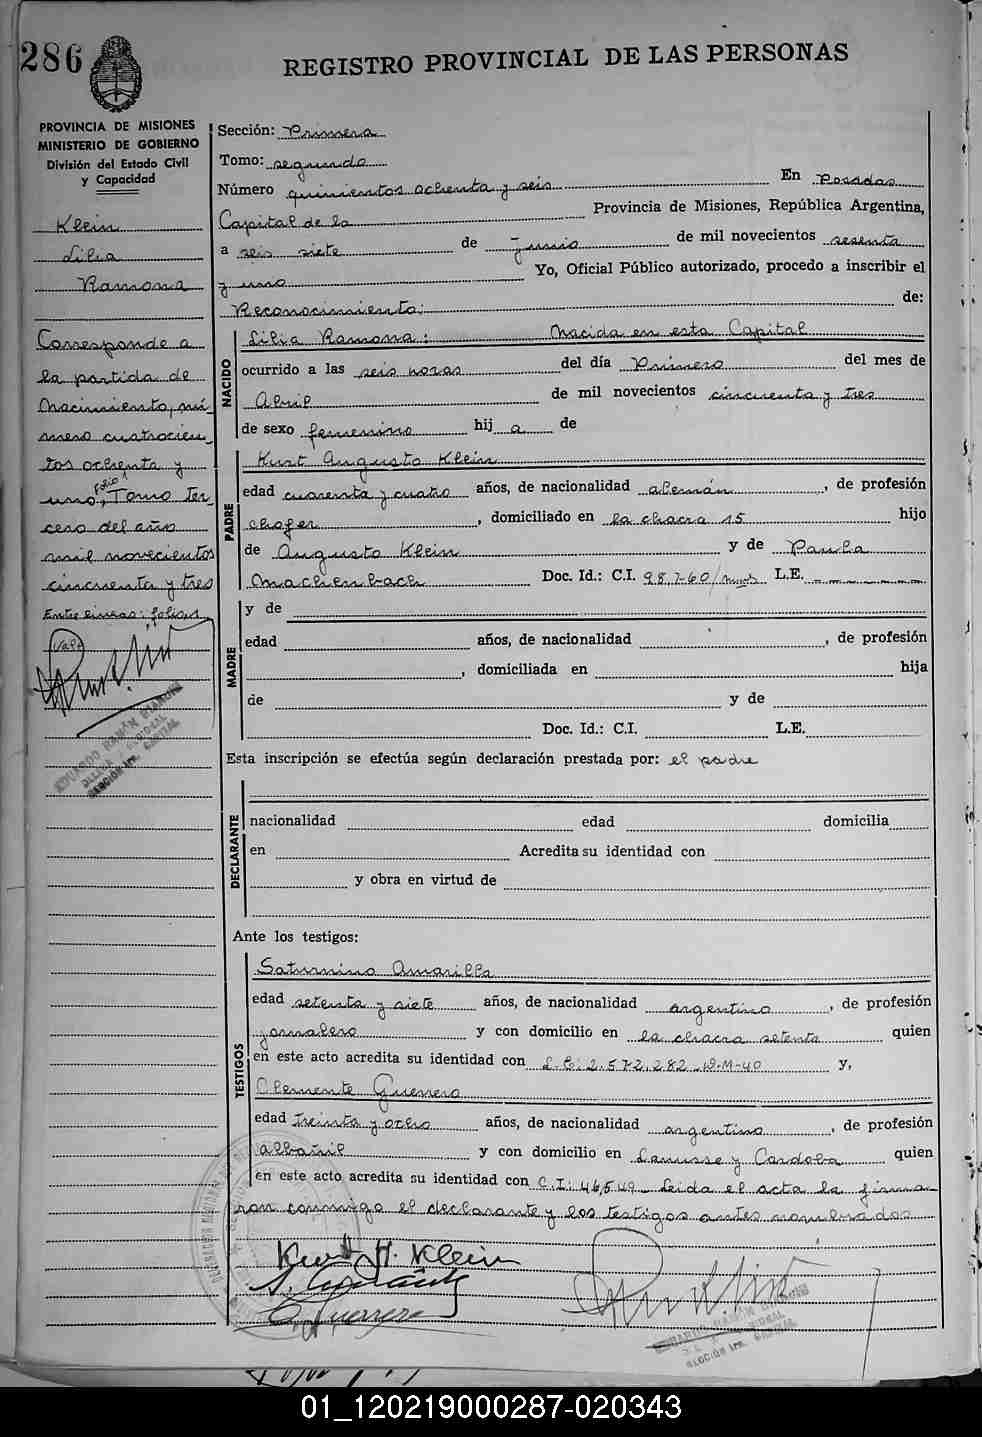 286
REGISTRO PROVINCIAL DE LAS PERSONAS
PROVINCIA DE MISIONES
MINISTERIO DE GOBIERNO
División del Estado Civil
y Capacidad
Klein
Lilia
Ramona
Corresponde a
la partida de
Nacimiento, nú-
mero cuatrocien-
tos ochenta y
folio 1
uno, Tomo ter-
cero del año
mil novecientos
cincuenta y tres
Entre lineas: folio,1
Vale
EDUARDO RAMÓN
SECCIÓN 1ra. CAPITAL
Sección: Primera
Tomo: segundo
Número quinientos ochenta y seis En Posadas
Capital de la Provincia de Misiones, República Argentina,
a seis siete de Junio de mil novecientos sesenta
y uno Yo, Oficial Público autorizado, procedo a inscribir el
Reconocimiento: de:
NACIDO
Lilia Ramona: Nacida en esta Capital
ocurrido a las seis horas del día Primero del mes de
Abril de mil novecientos cincuenta y tres
de sexo femenino hij a de
PADRE
Kurt Augusto Klein
edad cuarenta y cuatro años, de nacionalidad alemán, de profesión
chofer, domiciliado en la chacra 15 hijo
de Augusto Klein y de Paula
Machenbach Doc. Id.: C.I. 98.760/ L.E.
MADRE
y de
edad años, de nacionalidad , de profesión
, domiciliada en hija
de y de
Doc. Id.: C.I. L.E.
Esta inscripción se efectúa según declaración prestada por: el padre
DECLARANTE
nacionalidad edad domicilia
en Acredita su identidad con
y obra en virtud de
Ante los testigos:
TESTIGOS
Saturnino Amarilla
edad setenta y siete años, de nacionalidad argentino, de profesión
jornalero y con domicilio en la chacra setenta quien
en este acto acredita su identidad con L.E: 2.572.282 D-M-40 y,
Clemente Guerrero
edad treinta y ocho años, de nacionalidad argentino, de profesión
albañil y con domicilio en Lanusse y Cordoba quien
en este acto acredita su identidad con C.I: 46,549 Leida el acta la firma-
ron conmigo el declarante y los testigos antes nombrados
Kurt A. Klein
C Guerrero
EDUARDO RAMÓN
SECCIÓN 1ra. CAPITAL
01_120219000287-020343